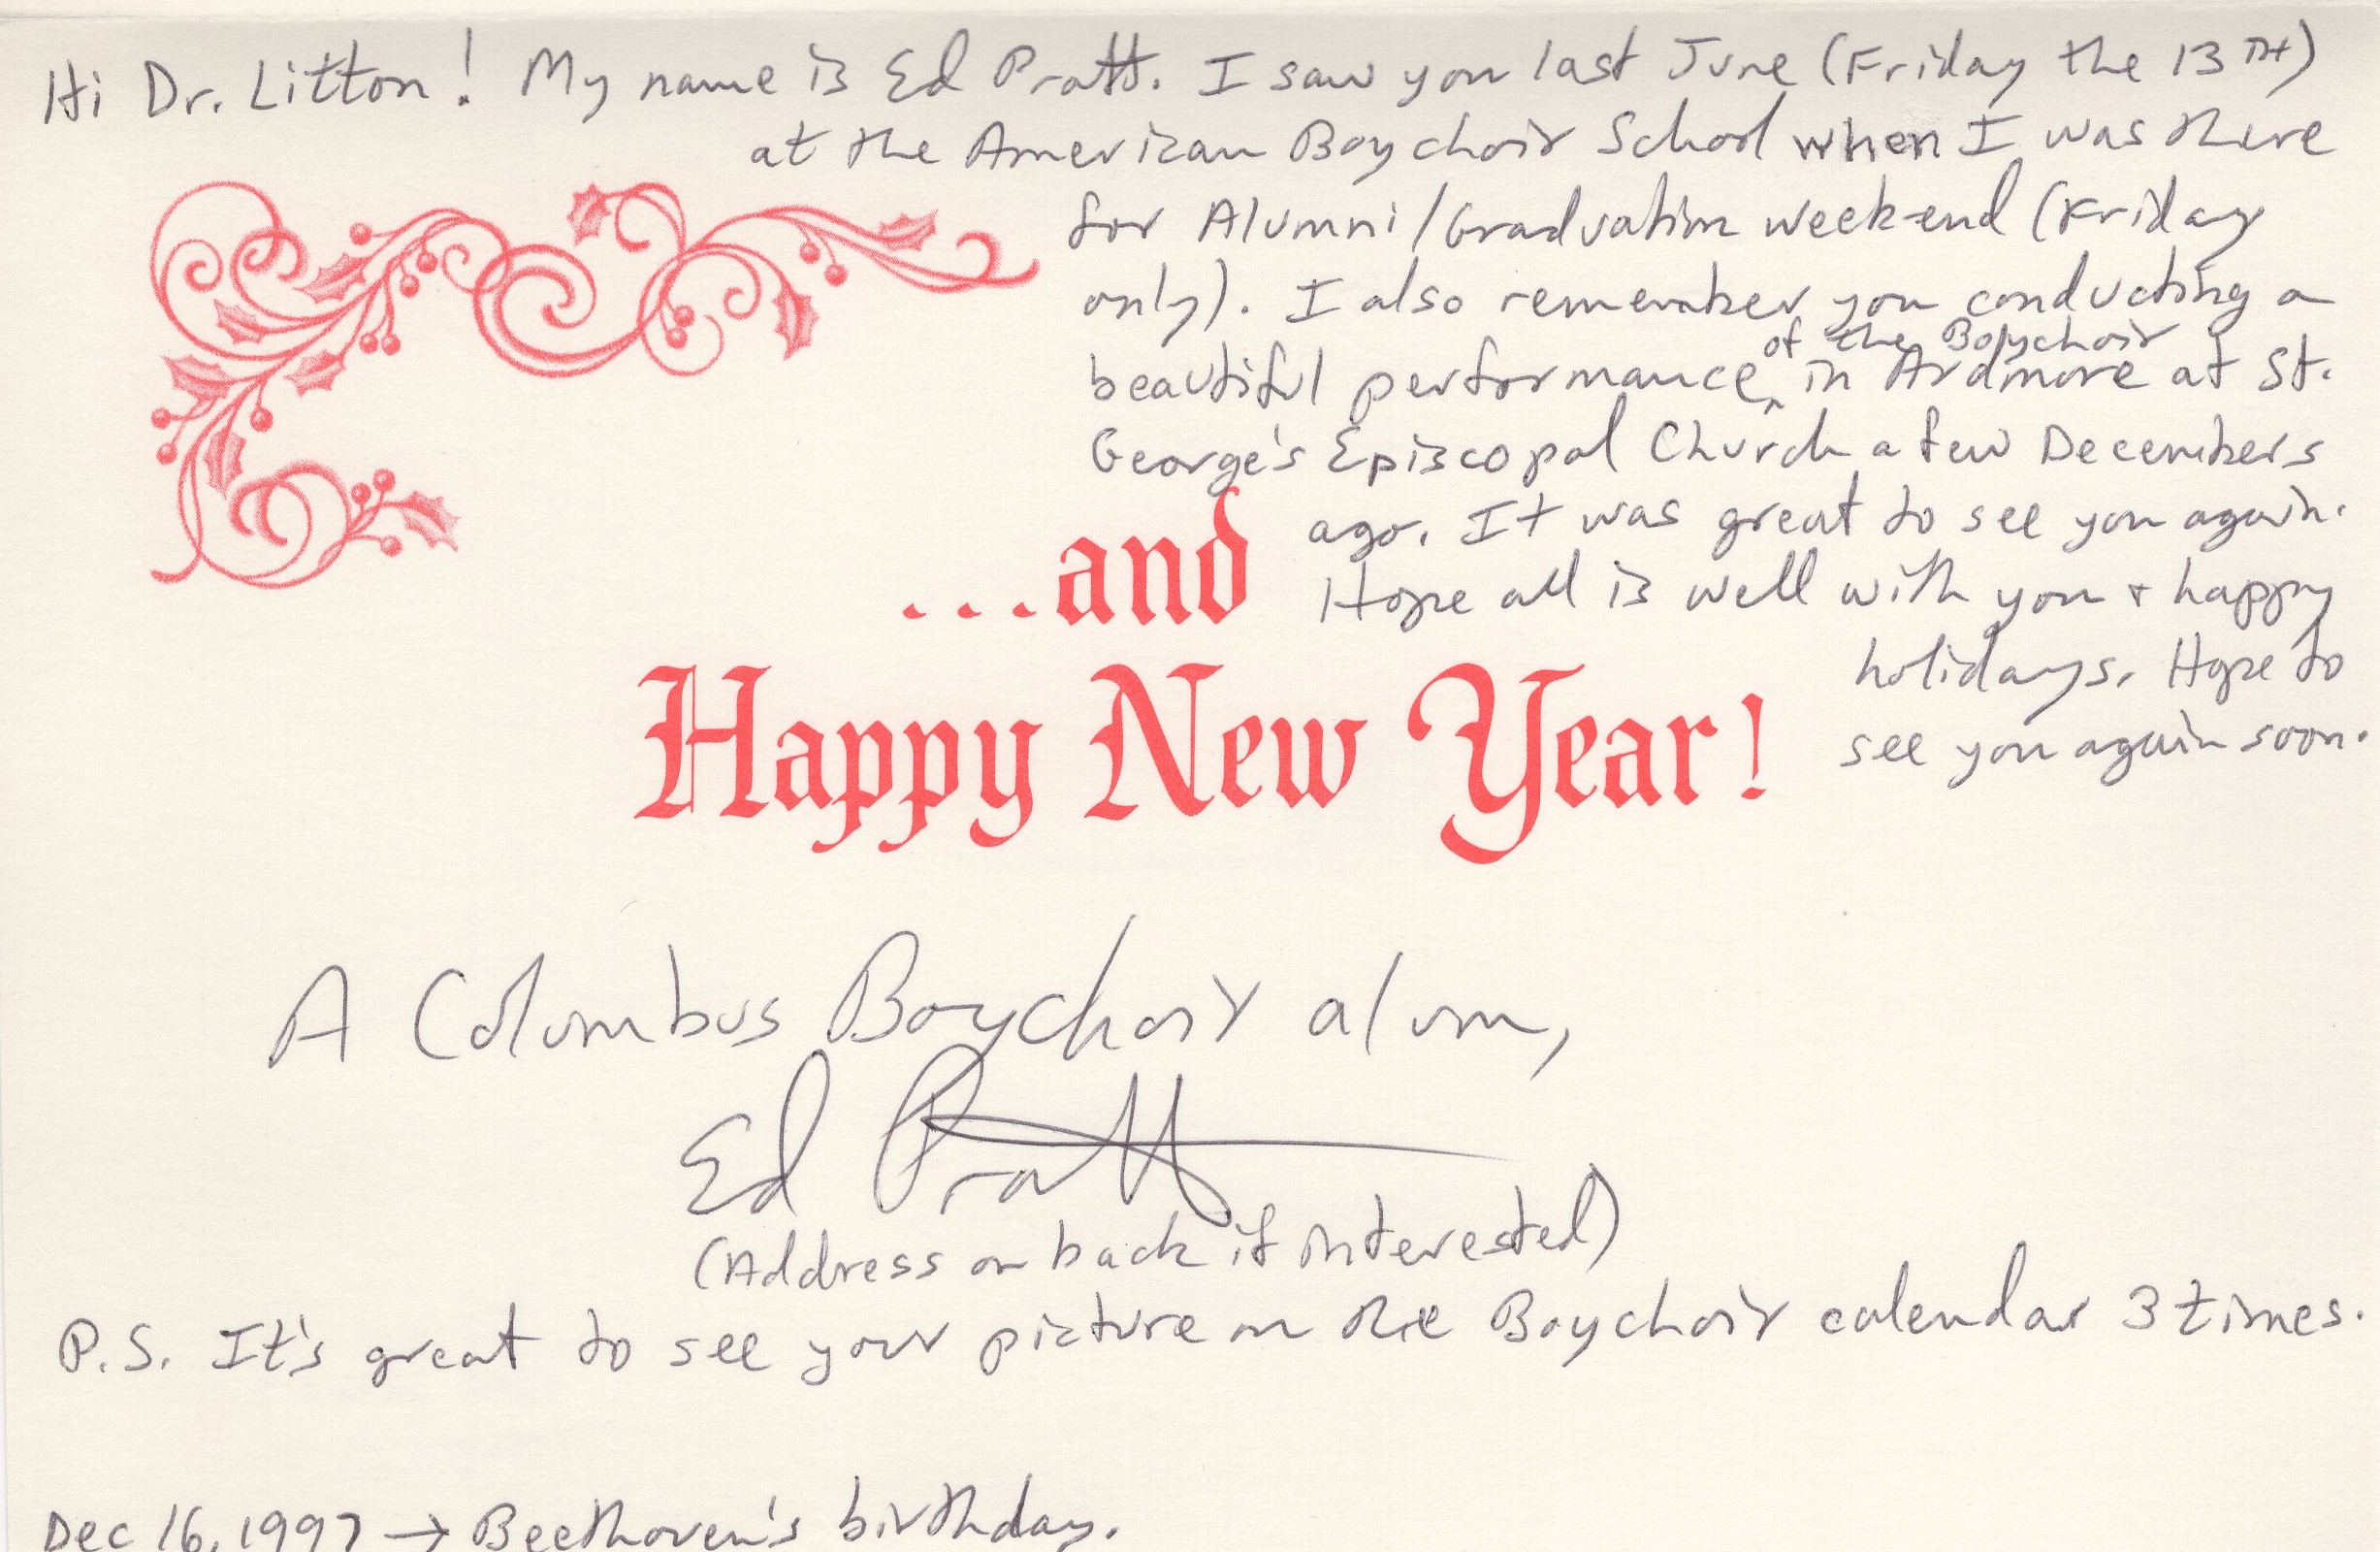 Hi Dr. Litton! My name is Ed Pratt. I saw you last June (Friday the 13TH)
at the American Boychoir School when I was there
for Alumni/Graduation week-end (Friday
only). I also remember you conducting a
of the Boychoir
beautiful performance^ in Ardmore at St.
George's Episcopal Church a few Decembers
ago. It was great to see you again.
Hope all is well with you + happy
holidays. Hope to
see you again soon.
...and
Happy New Year!
A Columbus Boychoir alum,
Ed Pratt
(Address on back if interested)
P.S. It's great to see your picture on the Boychoir calendar 3 times.
Dec 16, 1997 → Beethoven's birthday.